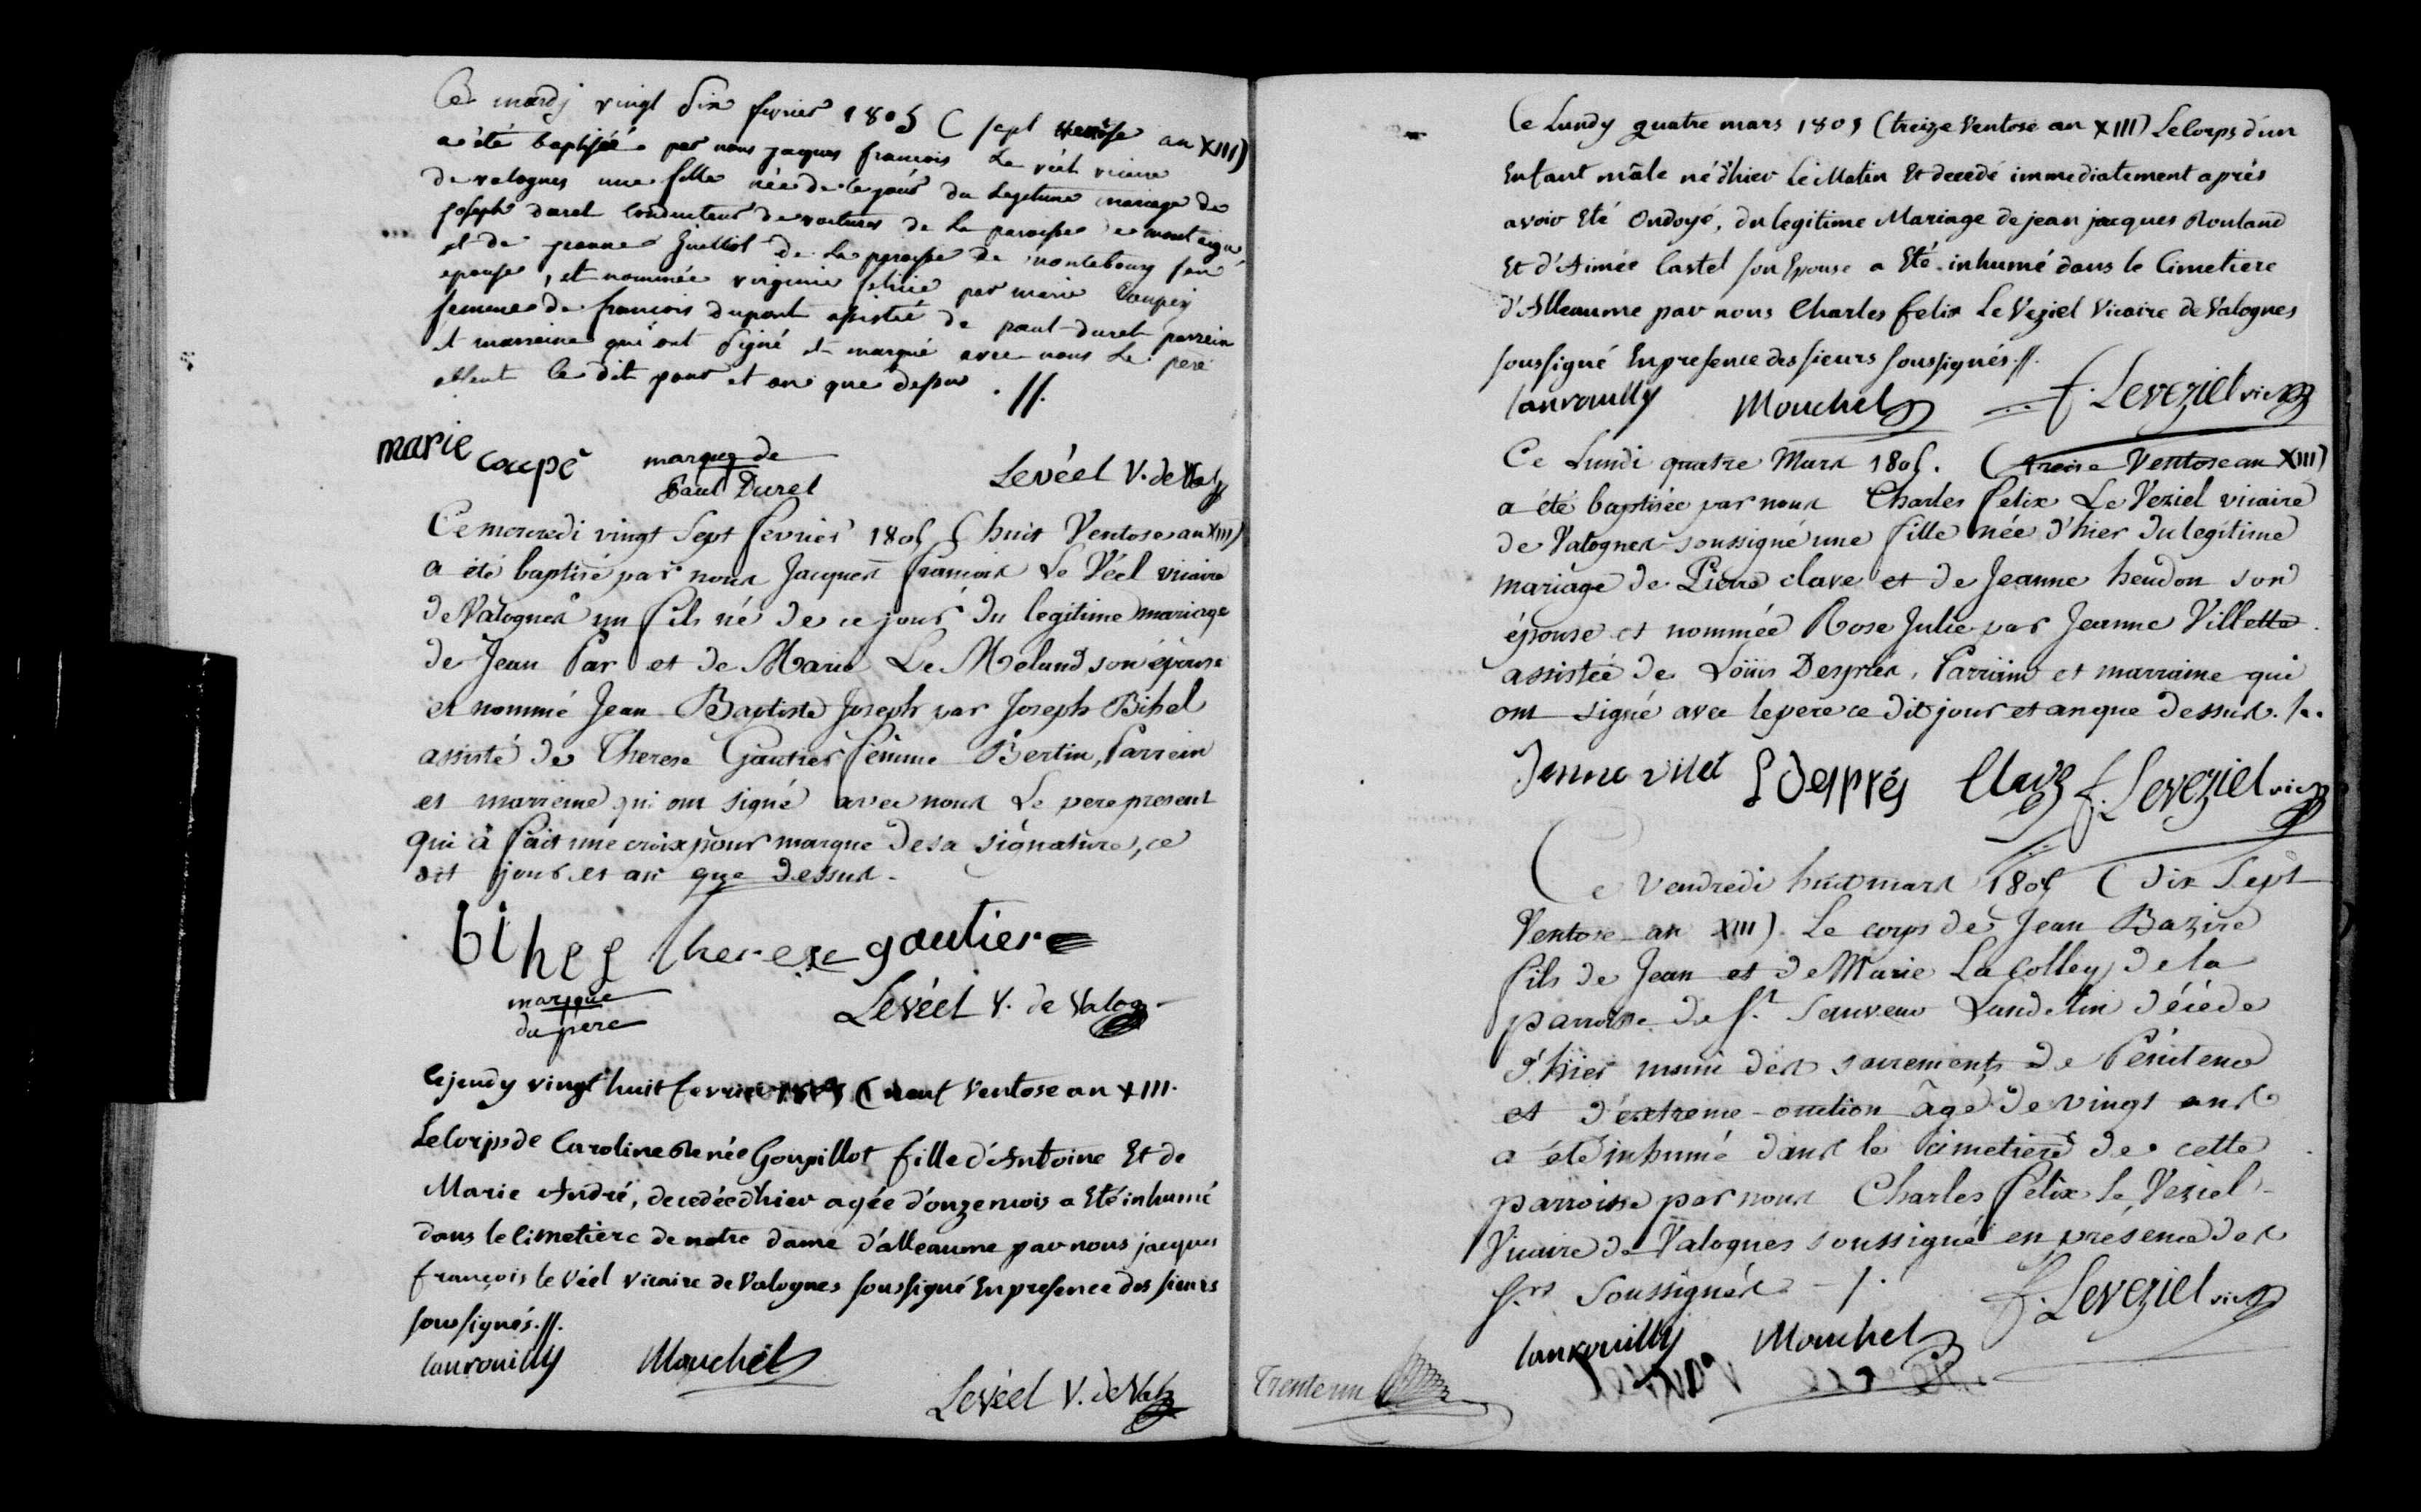 Ce mardj vingt six fevrier 1805 ( sept ventôse an XIII)
a été baptiséé par nous jaques francois Le véel vicaire
de valognes une fille née de ce jour du Legitime mariage de
joseph duret conducteur de voitures de La paroisse de montaigu
et de jeanne Guillot de La paroisse de montebourg son
epouse, et nommée virginie felicie par marie Coupey
femme de francois dupont assistée de paul duret parrein
et marraine qui ont signé et marqué avec nous Le pere
absent le dit jour et an que dessus . //.
marie coupé marque de Paul Duret Levéel V. de Val
Ce mercredi vingt sept fevrier 1805 ( huit Ventose an XIII)
a été baptisé par nous Jacques francois Le Véel vicaire
de Valognes un fils né de ce jour du legitime mariage
de Jean Par et de Marie Le Meland son épouse
et nommé Jean Baptiste Joseph par Joseph Bihel
assisté de Therese Gautier femme Bertin, Parrein
et marreine qui ont signé avec nous Le pere present
qui à fait une croix pour marque de sa signature, ce
dit jour et an que dessus.
bihel therese gautier
marque du pere Levéel V. de Valog
le jeudy vingt huit fevrier 1805 ( neuf Ventose an XIII.
Le Corps de Caroline Renée Goupillot fille d'Antoine Et de
Marie André, decedée d'hier agée d'onze mois a Eté inhumé
dans le Cimetiere de notre dame d'alleaume par nous jacques
françois le Véel vicaire de Valognes soussigné En presence des sieurs
soussignés.//.
Lanrouilly Mouchel Levéel V. de Val
Ce Lundy quatre mars 1805 (treize Ventose an XIII) Le Corps d'un
Enfant mâle né d'hier Le Matin Et decedé immediatement aprés
avoir Eté Ondoyé, du legitime Mariage de jean jacques Rouland
Et d'Aimée Castel son Epouse a Eté inhumé dans le Cimetiere
d'Alleaume par nous Charles felix Le Veziel Vicaire de Valognes
soussigné En presence des sieurs soussignés.//.
Lanrouilly Mouchel f. Leveziel vic
Ce Lundi quatre Mars 1805. (treise Ventose an XIII)
a été baptisée par nous Charles felix Le Veziel vicaire
de Valognes soussigné une fille née d'hier du legitime
mariage de Pierre clave et de Jeanne heudon son
épouse et nommée Rose Julie par Jeanne Villette
assistée de Loüis Desprès, Parrain et marraine qui
ont signé avec le pere ce dit jour et an que dessus. /.
Jenne vilet L després Clave f. Leveziel vic
Ce Vendredi huit mars 1805 ( dix Sept
Ventose an XIII). Le corps de Jean Bazire
fils de Jean et de Marie La Colley de la
parroisse de St. Sauveur Landelin décédé
d'hier muni des sacrements de Penitence
et d'extreme-onction âgé de vingt ans
a été inhumé dans le cimetiere de cette
parroisse par nous Charles felix le Veziel
Vicaire de Valognes soussigné en présence des
srs Soussignés - /.
Lanrouilly Mouchel f. Leveziel vic
Trente un